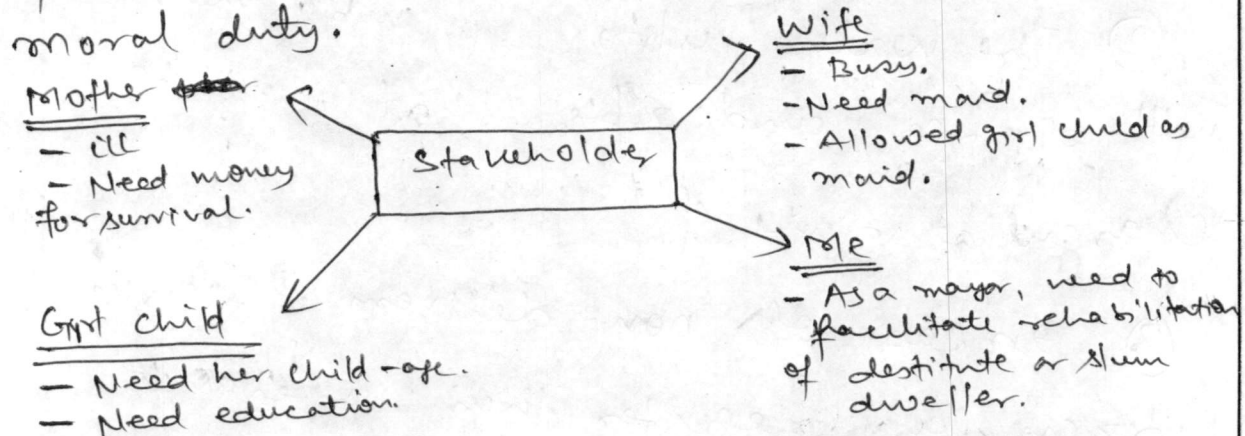 moral duty.
Mother
- ill
- Need money
for survival.
Stakeholder
Wife
- Busy.
- Need maid.
- Allowed girl child as
maid.
Me
- As a mayor, need to
facilitate rehabilitation
of destitute or slum
dweller.
Girl child
- Need her child-age.
- Need education.